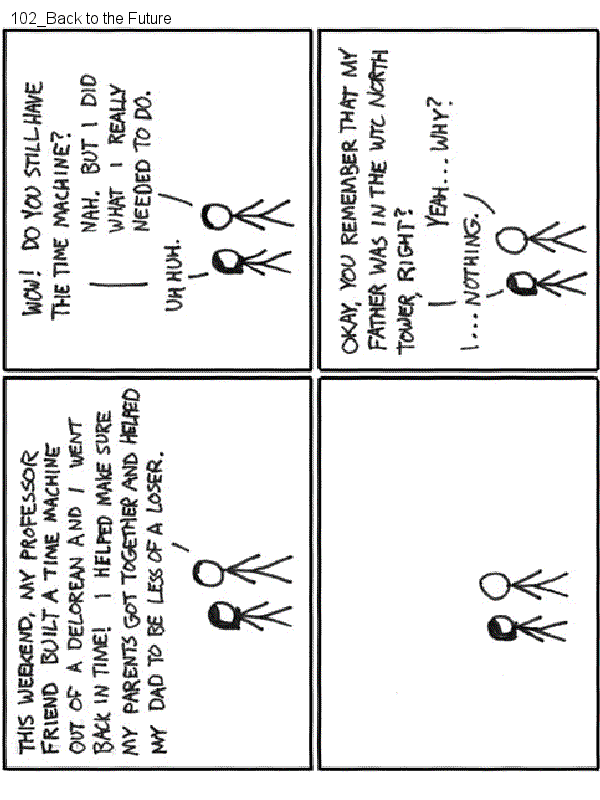 102_Back to the Future
THIS WEEKEND, MY PROFESSOR
FRIEND BUILT A TIME MACHINE
OUT OF A DELOREAN AND I WENT
BACK IN TIME! I HELPED MAKE SURE
MY PARENTS GOT TOGETHER AND HELPED
MY DAD TO BE LESS OF A LOSER.
WOW! DO YOU STILL HAVE
THE TIME MACHINE?
NAH. BUT I DID
WHAT I REALLY
NEEDED TO DO.
UH HUH.
OKAY, YOU REMEMBER THAT MY
FATHER WAS IN THE WTC NORTH
TOWER, RIGHT?
YEAH... WHY?
... NOTHING.